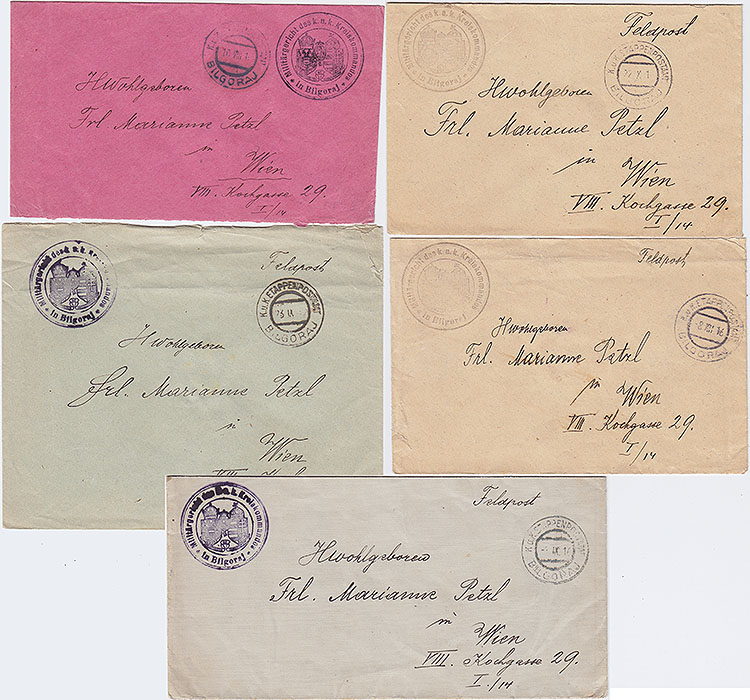 K.u.K.
BILGORAJ
Militärgericht des k. u. k. Kreiskommandos
in Bilgoraj
Hwohlgeboren
Frl. Marianne Petzl
in
Wien
VIII. Kochgasse 29.
I/14
Militärgericht des k. u. k. Kreiskommandos
in Bilgoraj
Feldpost
K.u.K. ETAPPENPOSTAMT
22 X 1
BILGORAJ
Hwohlgeboren
Frl. Marianne Petzl
in
Wien
VIII. Kochgasse 29.
I/14
Militärgericht des k. u. k. Kreiskommandos
in Bilgoraj
Feldpost
K.u.K. ETAPPENPOSTAMT
23 IX
BILGORAJ
Hwohlgeboren
Frl. Marianne Petzl
in
Wien
Militärgericht des k. u. k. Kreiskommandos
in Bilgoraj
Feldpost
K.u.K. ETAPPENPOSTAMT
8 XII 16
BILGORAJ
Hwohlgeboren
Frl. Marianne Petzl
in
Wien
VIII. Kochgasse 29.
I/14
Militärgericht des k. Kreiskommandos
in Bilgoraj
Feldpost
K.u.K. ETAPPENPOSTAMT
IX 1
BILGORAJ
Hwohlgeboren
Frl. Marianne Petzl
in
Wien
VIII. Kochgasse 29.
I./14